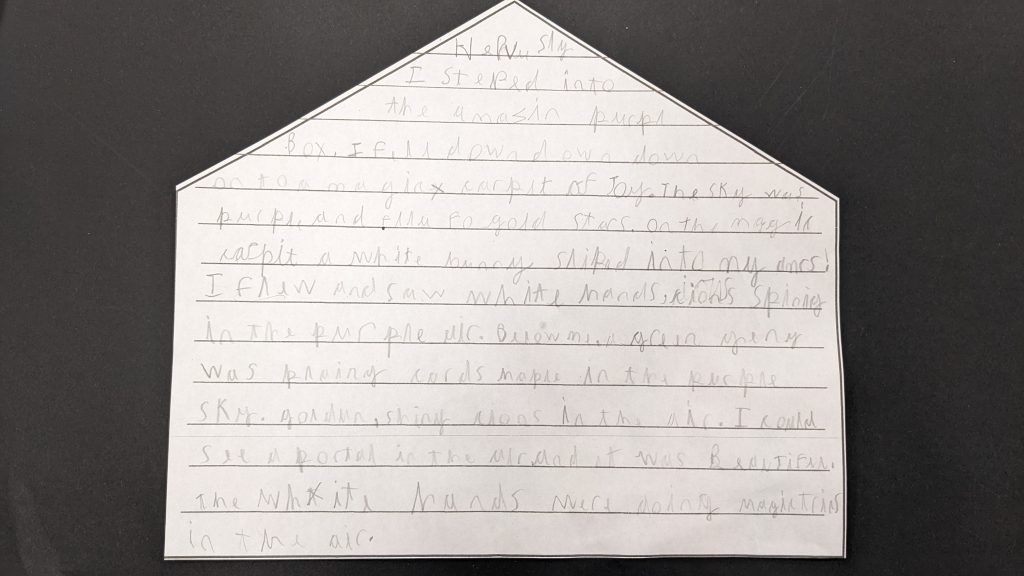 Nervusly
I steped into
the amasin purpl
Box. I fell down down down
on to a magic carpit of Joy. The sky was
purpl and full fo gold stars. on the magic
carpit a white bunny sliped into my arms!
I flew and saw white hands, spining
in the purple air. Below me a green geny
was plaing cards in the purple
sky. goldun, shiny in the air. I could
see a portal in the air and it was Beautiful.
The white hands were doing magic trics
in the air.